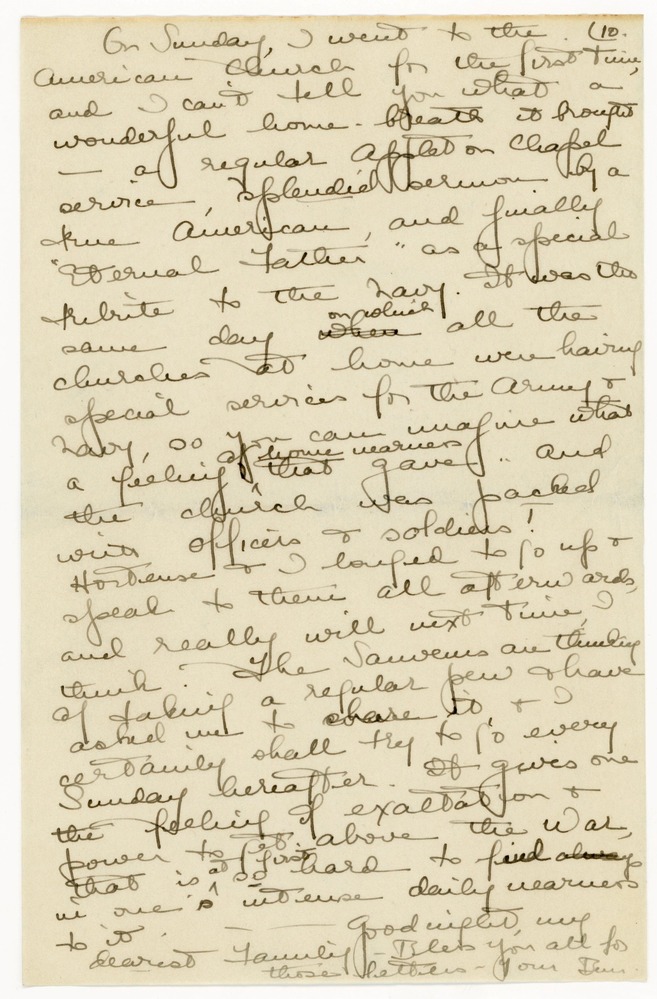 On Sunday, I went to the (10.
American Church for the first time,
and I can't tell you what a
wonderful home-breath it brought
— a regular Appleton Chapel
service, splendid sermon by a
true American, and finally
"Eternal Father" as a special
tribute to the Navy. It was the
same day when on which all the
churches at home were having
special services for the Army &
Navy, so you can imagine what
a feeling of home nearness that gave — and
the church was packed
with officers & soldiers!
Hortense & I longed to go up &
speak to them all afterwards,
and really will next time, I
think. The Sauvems are thinking
of taking a regular pew & have
asked me to share it & I
certainly shall try to go every
Sunday hereafter. It gives one
the feeling of exaltation &
power to get above the War,
that is at first so hard to find always
in one's intense daily nearness
to it. — Goodnight, my
dearest Family — Bless you all for
those letters — Your